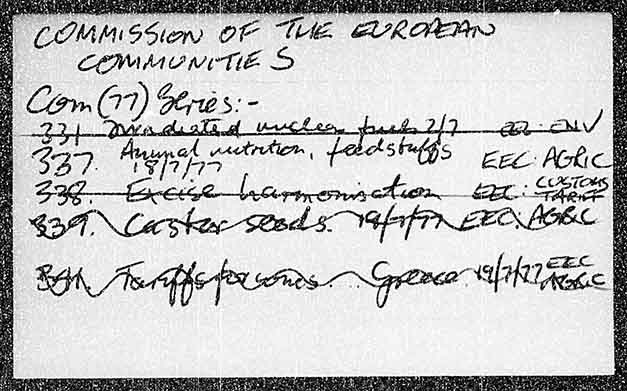 COMMISSION OF THE EUROPEAN
COMMUNITIES
Com (77) Series:-
331 Irradiated nuclear fuels 2/7 EEC: ENV
337. Animal nutrition, feedstuffs EEC: AGRIC
18/7/77
338. Excise harmonisation EEC: CUSTOMS TARIFF
339. Castor seeds. 19/7/77 EEC: AGRIC
341. Tariffs for wines. Greece 19/7/77 EEC AGRIC